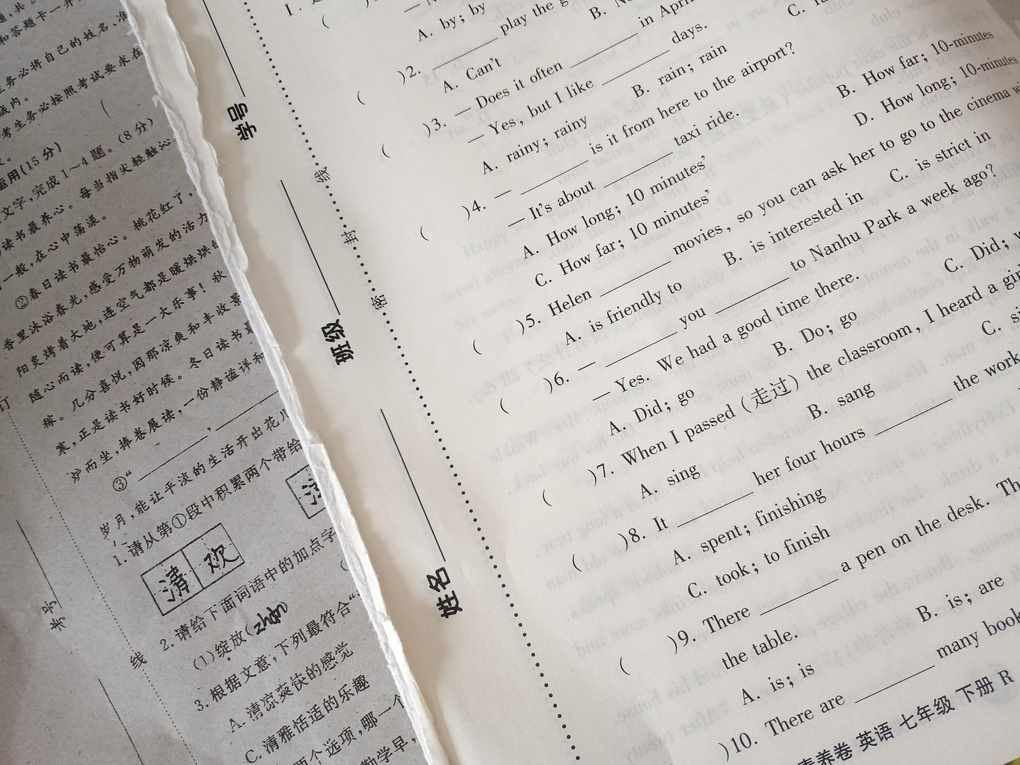 务必将自己的姓名
考生务必按照考试要求在
(15分)
文字,完成1~4题。(8分)
读书最养心。每当指尖轻触沁
一般,在心中荡漾。
②春日读书最怡心。桃花红了
香里沐浴春光,感受万物萌发的活力
阳炙烤着大地,连空气都是暖烘烘的
随心而读,便可算是一大乐事!秋
稼。几分喜悦,因那凉爽和丰收景
寒,正是读书好时候。冬日读书
炉而坐,捧卷展读,一份静谧祥和
③“________,________
岁月,能让平淡的生活开出花儿
1.请从第①段中积累两个带给
清 欢
2.请给下面词语中的加点字
(1)绽放(zhàn
3.根据文意,下列最符合“
A.清凉爽快的感觉
C.清雅恬适的乐趣
两个选项,哪一个
勤学早,
订
线
学号
学号
班级
姓名
线
封
密
A. by; by
( )2. ________ play the g
A. Can't
B.
( )3. — Does it often ________ in April
— Yes, but I like ________ days.
A. rainy; rainy B. rain; rain C.
( )4. — ________ is it from here to the airport?
— It's about ________ taxi ride.
A. How long; 10 minutes' B. How far; 10-minutes
C. How far; 10 minutes' D. How long; 10-minutes
( )5. Helen ________ movies, so you can ask her to go to the cinema w
A. is friendly to B. is interested in C. is strict in
( )6. — ________ you ________ to Nanhu Park a week ago?
— Yes. We had a good time there.
A. Did; go B. Do; go C. Did;
( )7. When I passed (走过) the classroom, I heard a girl
A. sing B. sang C. si
( )8. It ________ her four hours ________ the work
A. spent; finishing
C. took; to finish
( )9. There ________ a pen on the desk. Th
the table.
A. is; is B. is; are
)10. There are ________ many book
素养卷 英语 七年级 下册 R